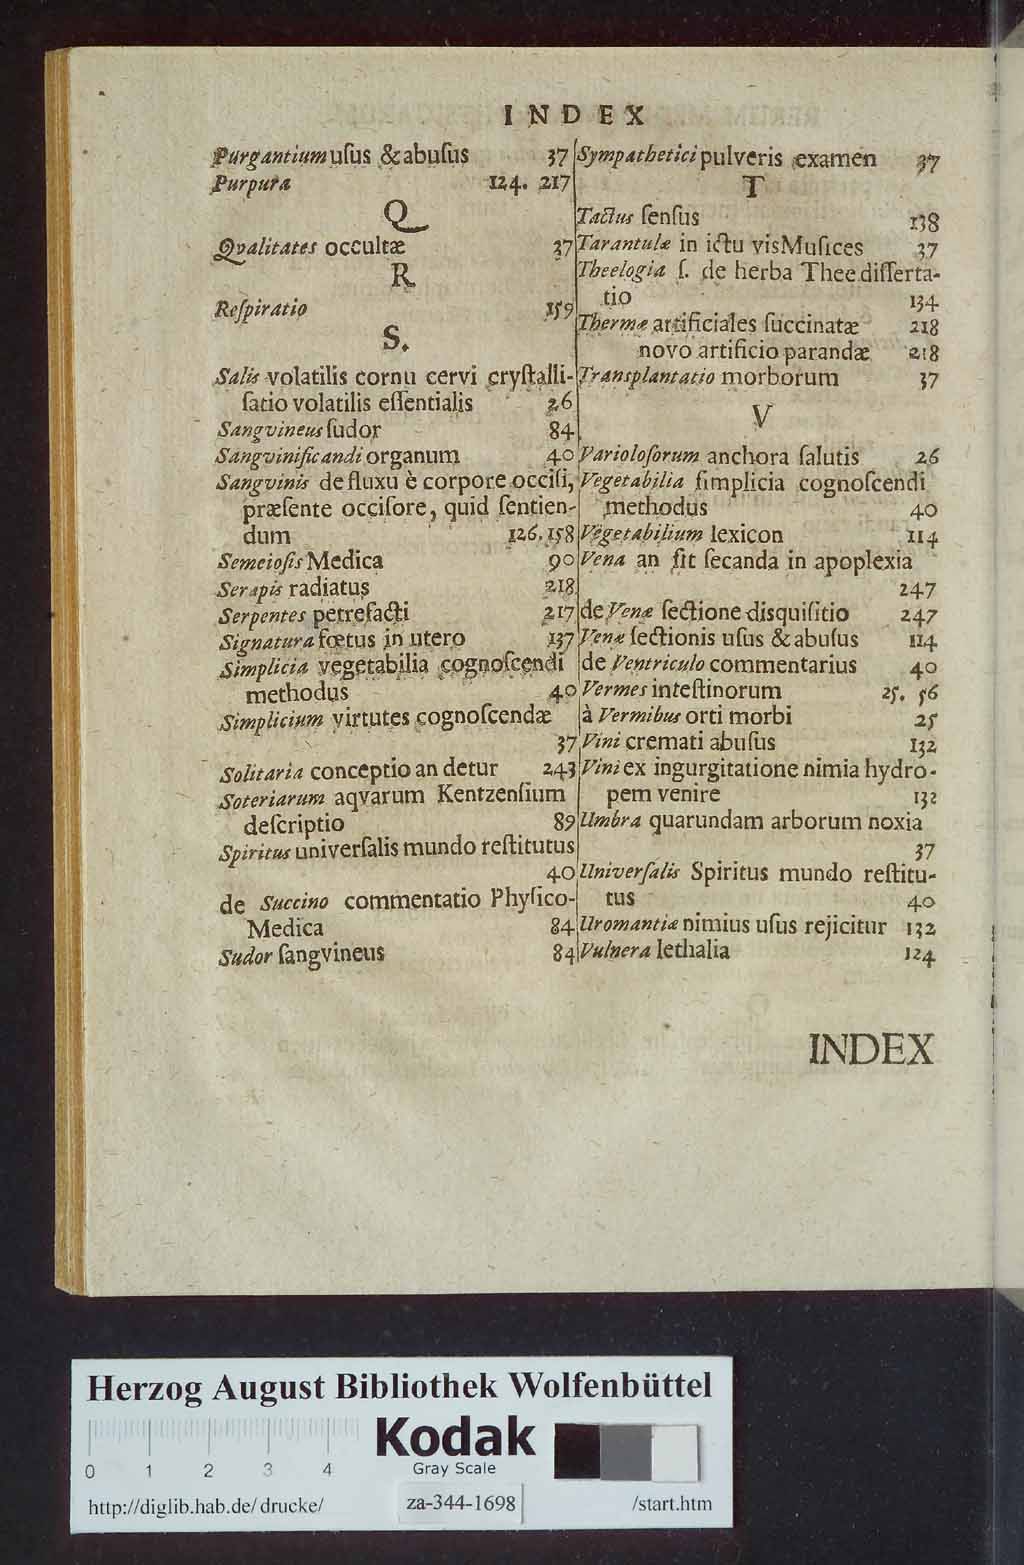 INDEX
Purgantium uſus & abuſus 37
Purpura 124. 217
Q
Qvalitates occultæ 37
R
Reſpiratio 159
S.
Salis volatilis cornu cervi cryſtalli-
ſatio volatilis eſſentialis 26
Sangvineus ſudor 84
Sangvinificandi organum 40
Sangvinis defluxu è corpore occiſi,
præſente occiſore, quid ſentien-
dum 126. 158
Semeioſis Medica 90
Serapis radiatus 218
Serpentes petrefacti 217
Signatura fœtus in utero 137
Simplicia vegetabilia cognoſcendi
methodus 40
Simplicium virtutes cognoſcendæ
37
Solitaria conceptio an detur 243
Soteriarum aqvarum Kentzenſium
deſcriptio 89
Spiritus univerſalis mundo reſtitutus
40
de Succino commentatio Phyſico-
Medica 84
Sudor ſangvineus 84
Sympathetici pulveris examen 37
T
Tactus ſenſus 138
Tarantulæ in ictu vis Muſices 37
Theelogia ſ. de herba Thee diſſerta-
tio 134
Thermæ artificiales ſuccinatæ 218
novo artificio parandæ 218
Transplantatio morborum 37
V
Varioloſorum anchora ſalutis 26
Vegetabilia ſimplicia cognoſcendi
methodus 40
Vegetabilium lexicon 114
Vena an ſit ſecanda in apoplexia
247
de Venæ ſectione disquiſitio 247
Venæ ſectionis uſus & abuſus 114
de Ventriculo commentarius 40
Vermes inteſtinorum 25. 56
à Vermibus orti morbi 25
Vini cremati abuſus 132
Vini ex ingurgitatione nimia hydro-
pem venire 132
Umbra quarundam arborum noxia
37
Univerſalis Spiritus mundo reſtitu-
tus 40
Uromantiæ nimius uſus rejicitur 132
Vulnera lethalia 124
INDEX
Herzog August Bibliothek Wolfenbüttel
Kodak
0 1 2 3 4
Gray Scale
http://diglib.hab.de/drucke/ za-344-1698 /start.htm